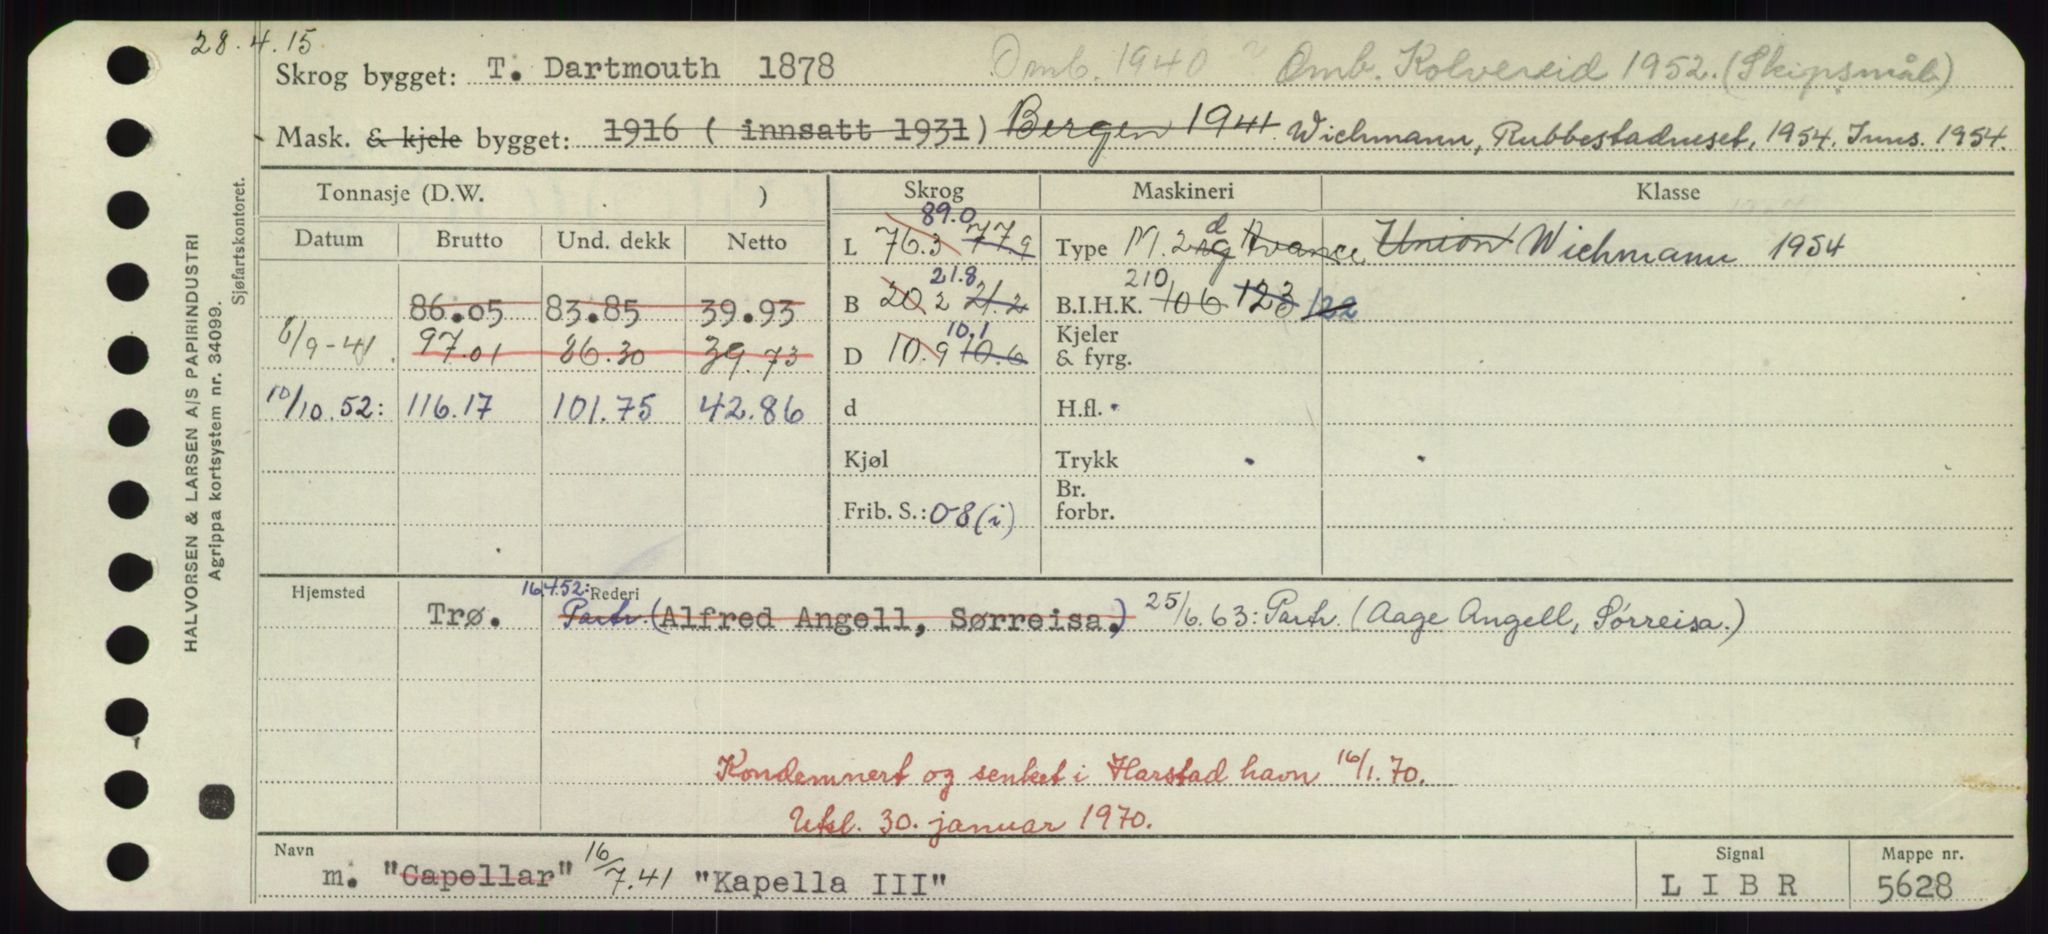 28.4.15
Skrog bygget: T. Dartmouth 1878 Omb. 1940 ? Omb. Kolvereid 1952. (Skipsmål)
Mask. & kjele bygget: 1916 ( innsatt 1931) Bergen 1941 Wichmann, Rubbestadneset, 1954. Inns. 1954.
Tonnasje (D.W. ) Skrog Maskineri Klasse
Datum Brutto Und. dekk Netto
89.0
L 76.3 77.9 Type M. 2 Avance Union Wichmann 1954
21.8 210
86.05 83.85 39.93 B 20.2 21.2 B.I.H.K. 106 123 122
10.1 Kjeler
8/9-41. 97.01 86.30 39.73 D 10.9 10.6 & fyrg.
10/10.52: 116.17 101.75 42.86 d H.fl.
Kjøl Trykk
Br.
Frib. S.: 08 (i) forbr.
Hjemsted 16.4.52: Rederi
Trø. Partr (Alfred Angell, Sørreisa.) 25/6.63: Partr. (Aage Angell, Sørreisa.)
Kondemnert og senket i Harstad havn 16/1.70.
Utsl. 30. januar 1970.
Navn Signal Mappe nr.
m. "Capellar" 16/7.41 "Kapella III" L I B R 5628
HALVORSEN & LARSEN A/S PAPIRINDUSTRI
Agrippa kortsystem nr. 34099.
Sjøfartskontoret.